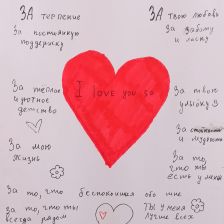 ЗА терпение
За постоянную
поддержку
За теплое
и уютное
детство
За мою
жизнь
За то, что
ты
всегда рядом
I love you so
ЗА твою любовь
За заботу
и ласку
За твою
улыбку
За
и мудрость
За то,
что ты
есть у меня
беспокоишься обо мне
Ты у меня
лучше всех